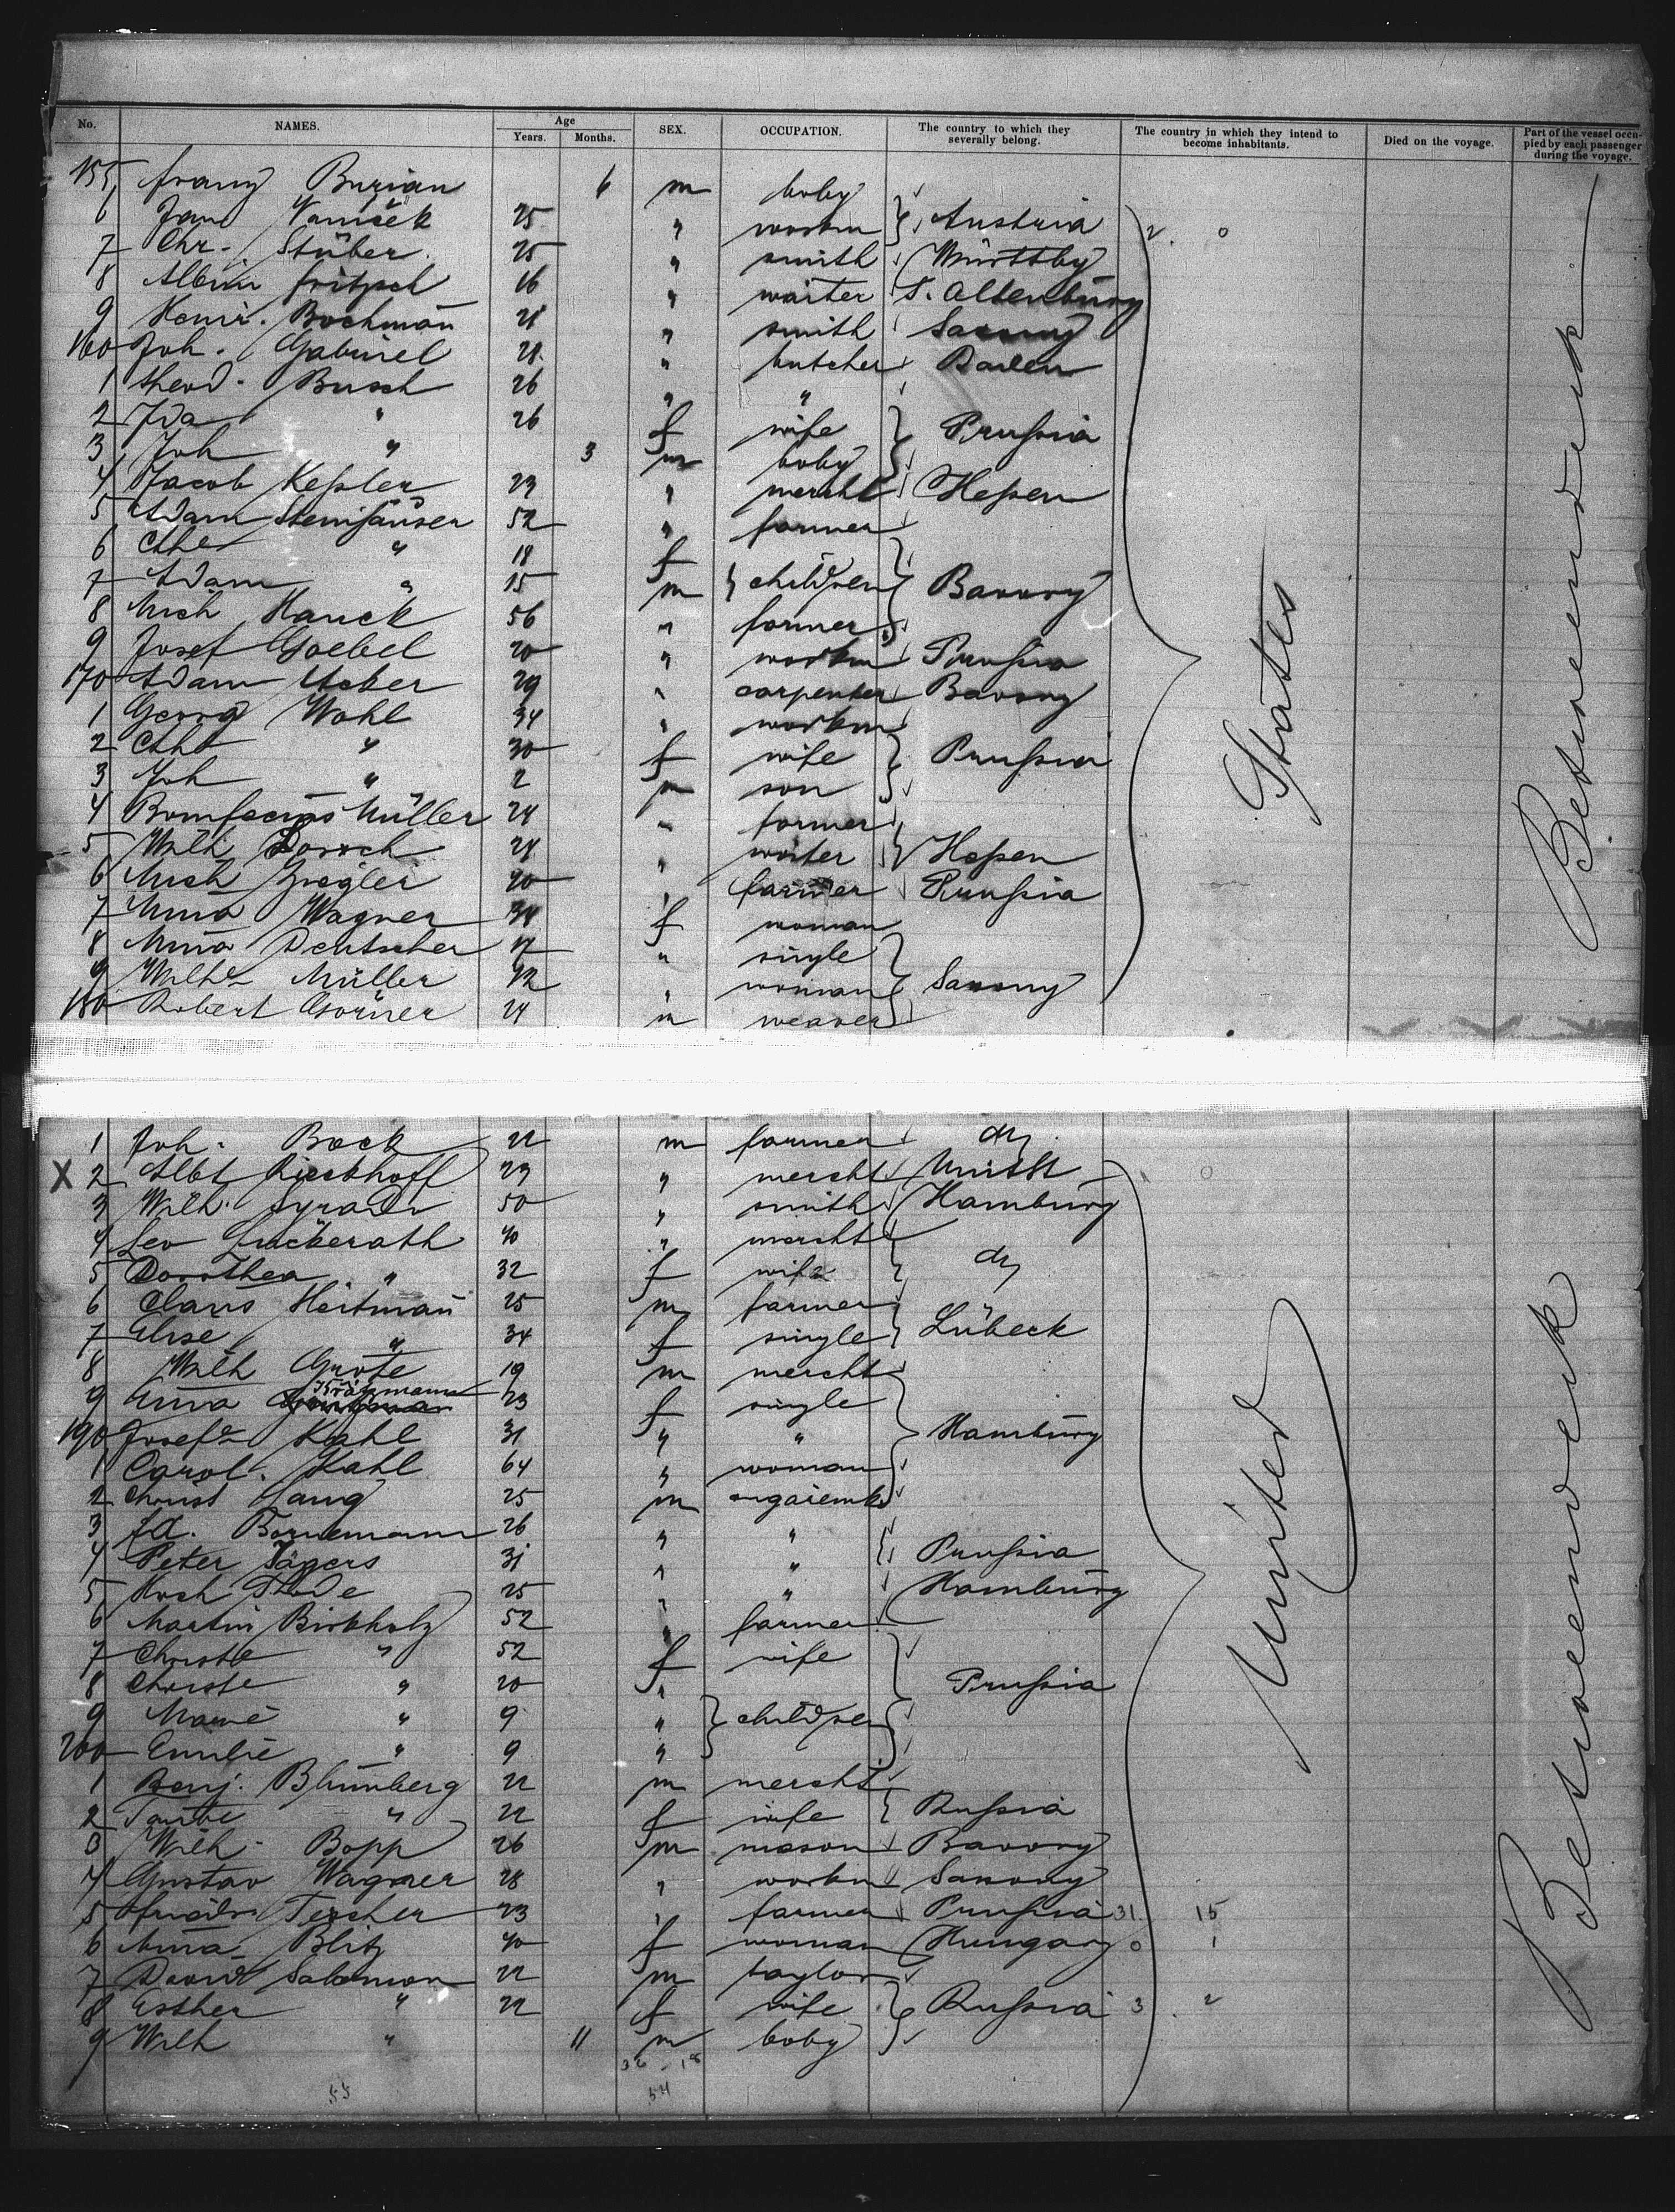 No. NAMES. Age Years. Months. SEX. OCCUPATION. The country to which they severally belong. The country in which they intend to become inhabitants. Died on the voyage. Part of the vessel occupied by each passenger during the voyage.
155 Franz Burian 6 m baby
6 Jan Vanicek 25 " workm Austria 2 0
7 Chr. Stüber 25 " smith Württbg
8 Albin Fritzsch 16 " waiter S. Altenburg
9 Heinr. Bochman̄ 21 " smith Saxony
160 Joh. Gabriel 28 " butcher Baden
1 Theod. Busch 26 " "
2 Ida " 26 f wife Prussia
3 Joh " 3 m baby
4 Jacob Kessler 23 " mercht Hessen
5 Adam Steinhäuser 52 " farmer
6 Cthe " 18 f
7 Adam " 15 m children Bavary
8 Mich Hauck 56 " farmer
9 Josef Goebel 20 " workm Prussia
170 Adam Acker 29 " carpenter Bavary
1 Georg Wohl 34 " workm
2 Cthe " 30 f wife Prussia
3 Joh " 2 m son
4 Bonifacius Müller 24 " farmer
5 Wilh Dorsch 24 " waiter Hessen
6 Mich Ziegler 20 " farmer Prussia
7 Anna Wagner 34 f woman
8 Anna Deutscher 17 " single
9 Wilhe Müller 42 " woman Saxony
180 Robert Görner 24 m weaver
States
Betweendeck
1 Joh. Bock 22 m farmer do
X 2 Albt Rieckhoff 23 " mercht Unit St 0
3 Wilh. 50 " smith Hamburg
4 Leo Lückerath 40 " mercht
5 Dorothea " 32 f wife do
6 Claus Heitman̄ 25 m farmer
7 Elise " 34 f single Lübeck
8 Wilh Grote 19 m mercht
9 Anna 23 f single
190 Josefe Kahl 31 " " Hamburg
1 Carol. Kahl 64 " woman
2 Christ Lang 25 m
3 Fd. Bornemann 26 " "
4 Peter Jägers 31 " " Prussia
5 25 " " Hamburg
6 Martin Birkholz 52 " farmer
7 Christe " 52 f wife
8 Christe " 20 " Prussia
9 Marie " 9 " children
200 Emilie " 9 "
1 Benj. Blumberg 22 m mercht
2 Taube " 22 f wife Russia
3 Wilh. Bopp 26 m mason Bavary
4 Gustav Wagner 28 " workm Saxony
5 Friedr. Tescher 23 " farmer Prussia 31 15
6 Anna Blitz 40 f woman Hungary 0 1
7 David Salomon 22 m taylor
8 Esther " 22 f wife Russia 3 2
9 Wilh " 11 m baby
36 - 18
55 54
United
Betweendeck